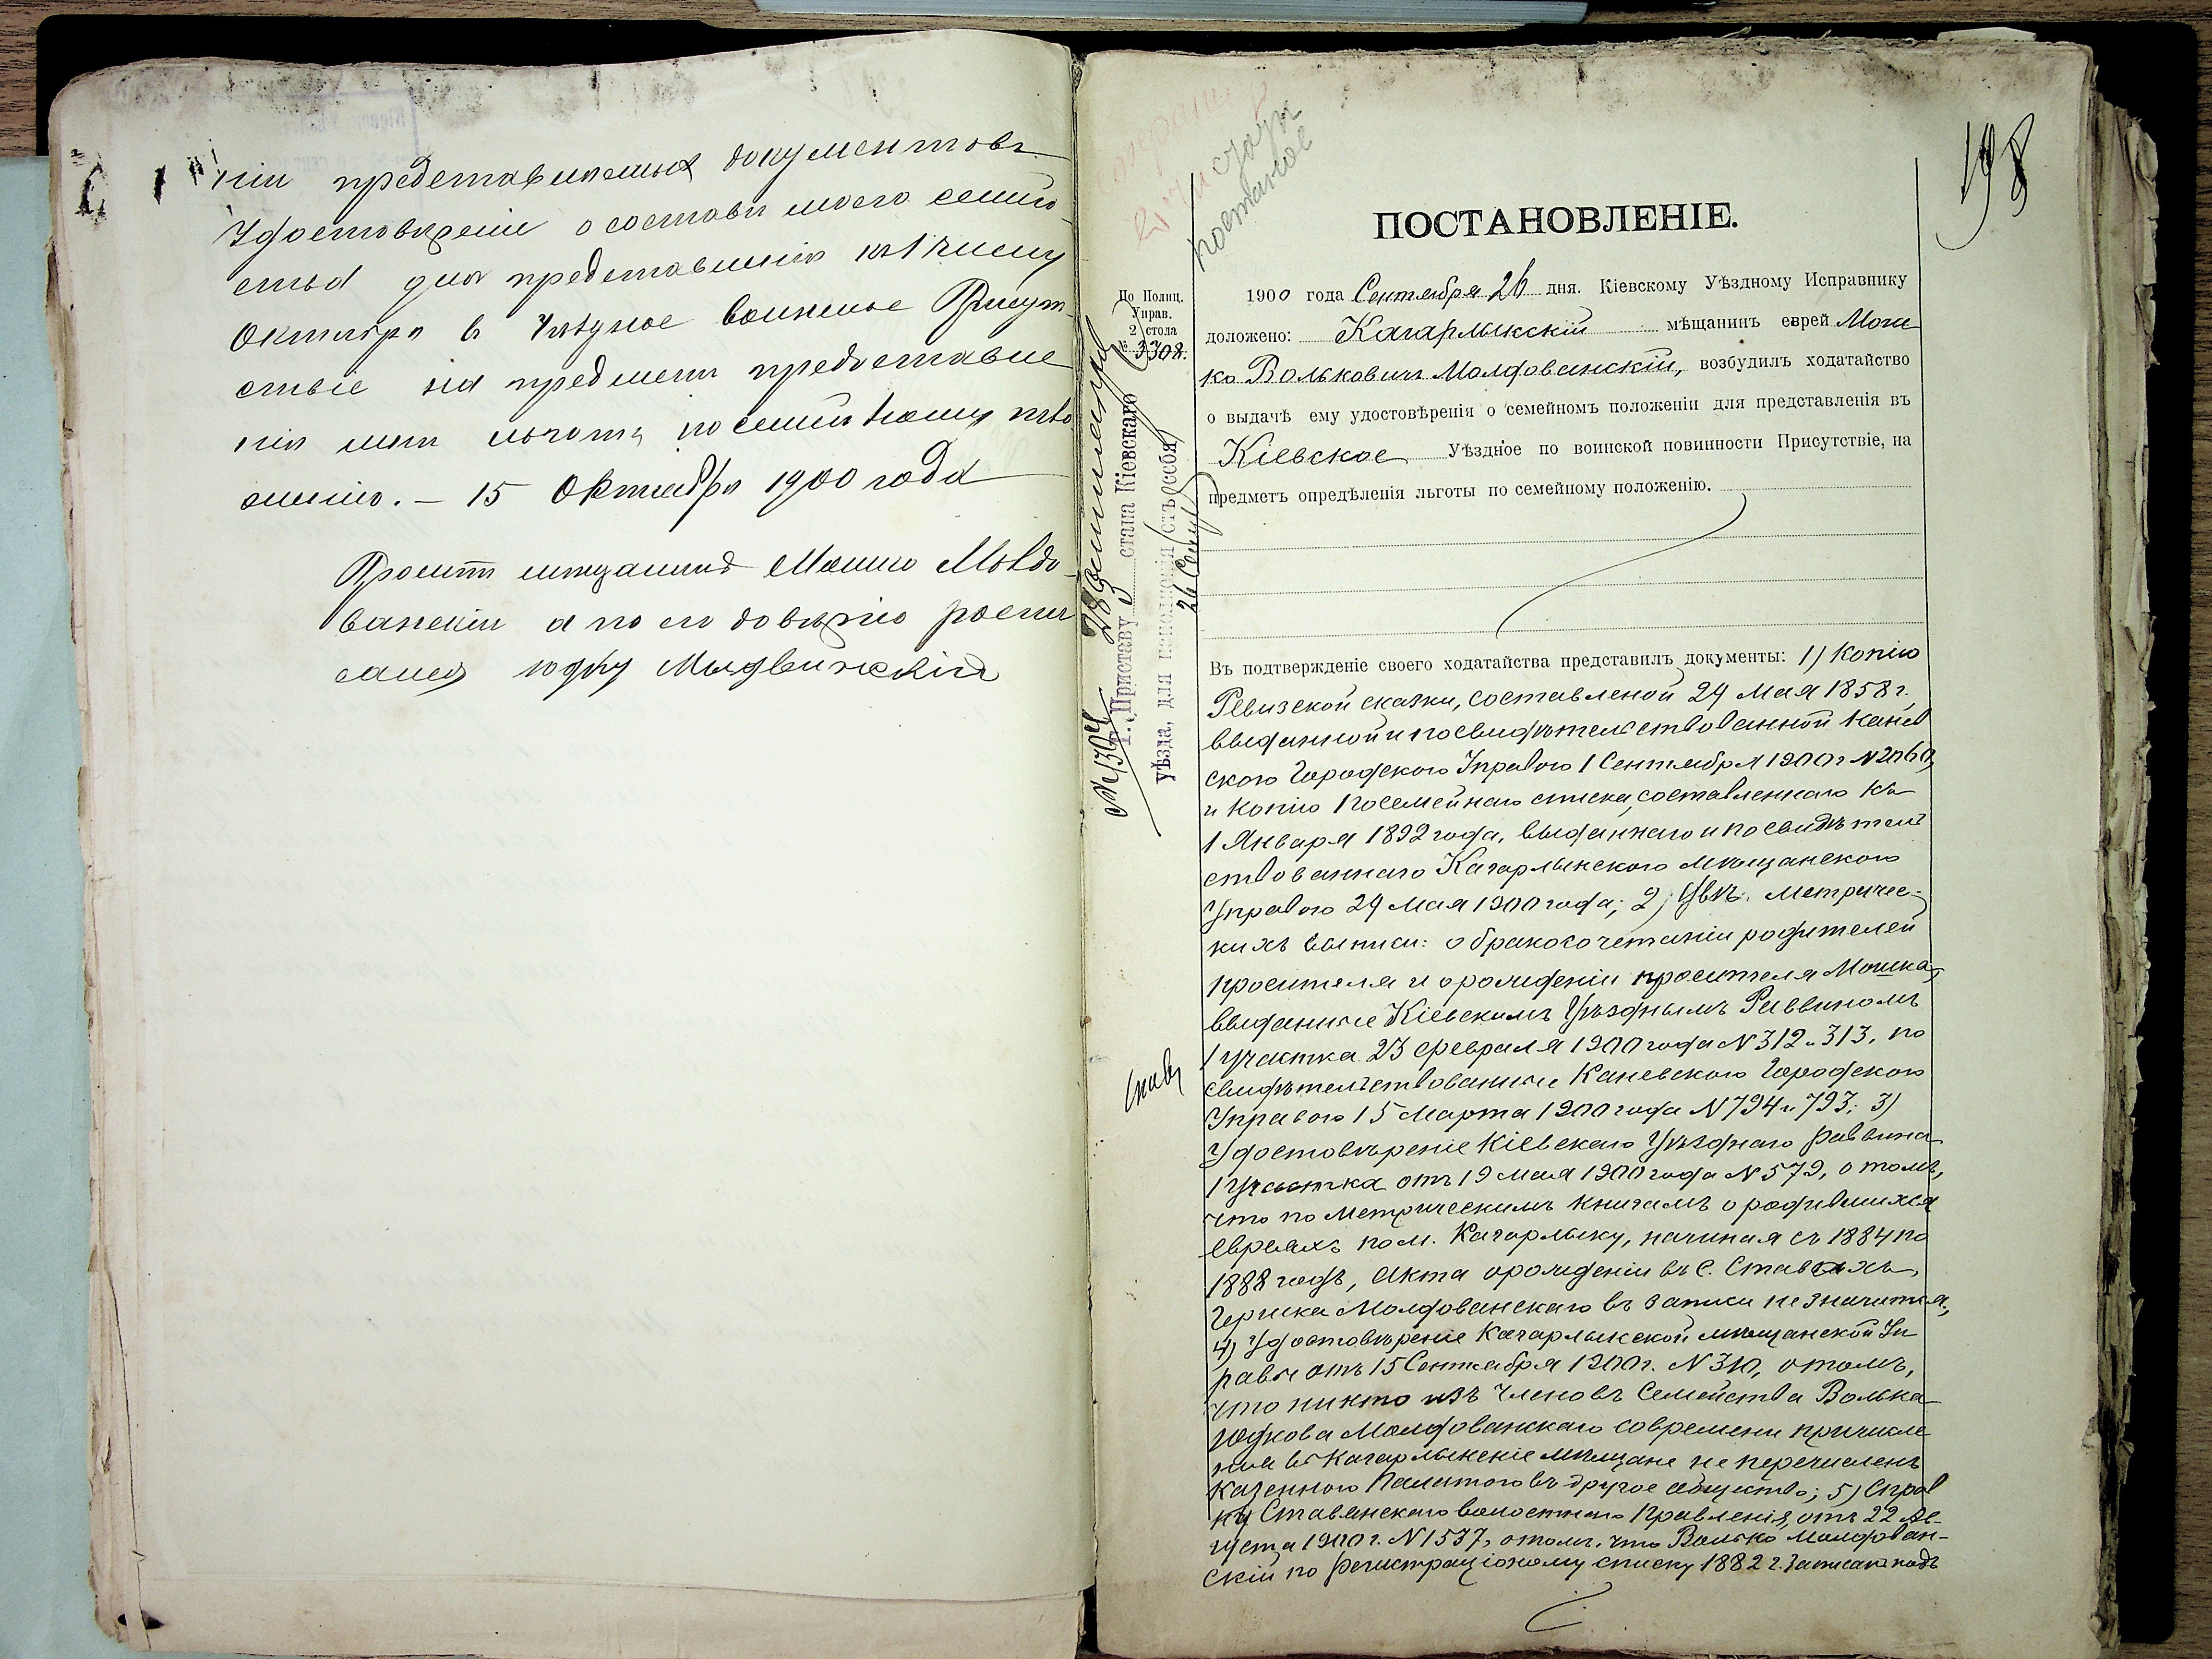 ніи представляемыхъ документовъ
Удостовѣреніе о составѣ моего семей-
ства для представленія къ 1 числу
Октября в Уѣздное воинское Присут-
ствіе на предметъ предоставле
нія мнѣ льготы по семейному поло
женію. – 15 Октября 1900 года
Проситъ мещанинъ Мошко Молдо-
ванскій а по его довѣрію роспи
сался Юдку Мидвинскій
198
постанов
ПОСТАНОВЛЕНІЕ.
По Полиц.
Управ.
2 стола
№ 3308.
1900 года Сентября 26 дня. Кіевскому Уѣздному Исправнику
доложено: Кагарлыкскій мѣщанинъ еврей Мош
ко Вольковичъ Молдованскій, возбудилъ ходатайство
о выдачѣ ему удостовѣренія о семейномъ положеніи для представленія въ
Кіевское Уѣздное по воинской повинности Присутствіе, на
предметъ опредѣленія льготы по семейному положенію.
Г. Приставу 3 стана Кіевскаго
уѣзда, для
26 Сент
№ 1304
Въ подтвержденіе своего ходатайства представилъ документы: 1) Копію
Ревизской сказки, составленой 24 Мая 1858 г.
выданной и посвидѣтельствованнойКанев
ского Городского Управою 1 Сентября 1900 г N 2060,
и Копію посемейнаго списка, составленнаго къ
1 Января 1892 года, выданнаго и посвидѣтель
ствованнаго Кагарлыкского мѣщанского
Управою 24 Мая 1900 года; 2) Двѣ Метричес-
кихъ выписи: о бракосочетаніи родителей
просителя и о рожденіи просителя Мошка,
выданные Кіевскимъ Уѣзднымъ Раввиномъ
1 участка 23 февраля 1900 года N 312 и 313, по
свидѣтельствованные Каневского Городского
Управою 15 Марта 1900 года N 794 и 793; 3)
Удостовѣреніе Кіевскаго Уѣзднаго раввина
1 Участка отъ 19 Мая 1900 года N 579, о томъ,
что по Метрическимъ книгамъ о родившихся
евреяхъ по м. Кагарлыку, начиная съ 1884 по
1888 годъ, Акта о рожденіи въ С. Ставахъ,
Гершка Молдованскаго въ записи не значится,
4) Удостовѣреніе Кагарлыкской мѣщанской Уп
равы отъ 15 Сентября 1900 г. N 310, о томъ,
что никто изъ Членовъ Семейства Волька
Юдкова Молдованскаго со времени причисле
нія въ Кагарлыкскіе мѣщане не перечисленъ
Казенною Палатою въ другое общество; 5) Справ
ку Ставянскаго волостнаго Правленія, отъ 22 Ав-
густа 1900 г. N 1537, о томъ, что Волько Молдован-
скій по регистраціоному списку 1882 г. записанъ подъ